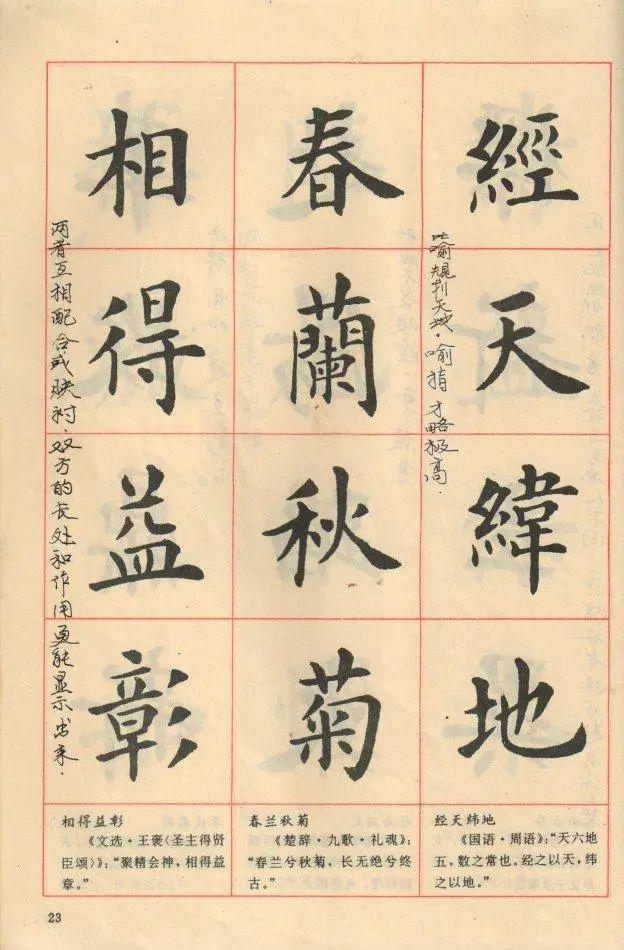 經天緯地
春蘭秋菊
相得益彰
比喻规划天地．喻指才略极高．
两者互相配合或映衬．双方的长处和作用更能显示出来．
经天纬地
《国语·周语》：“天六地
五，数之常也。经之以天，纬
之以地。”
春兰秋菊
《楚辞·九歌·礼魂》：
“春兰兮秋菊，长无绝兮终
古。”
相得益彰
《文选·王褒〈圣主得贤
臣颂〉》：“聚精会神，相得益
章。”
23